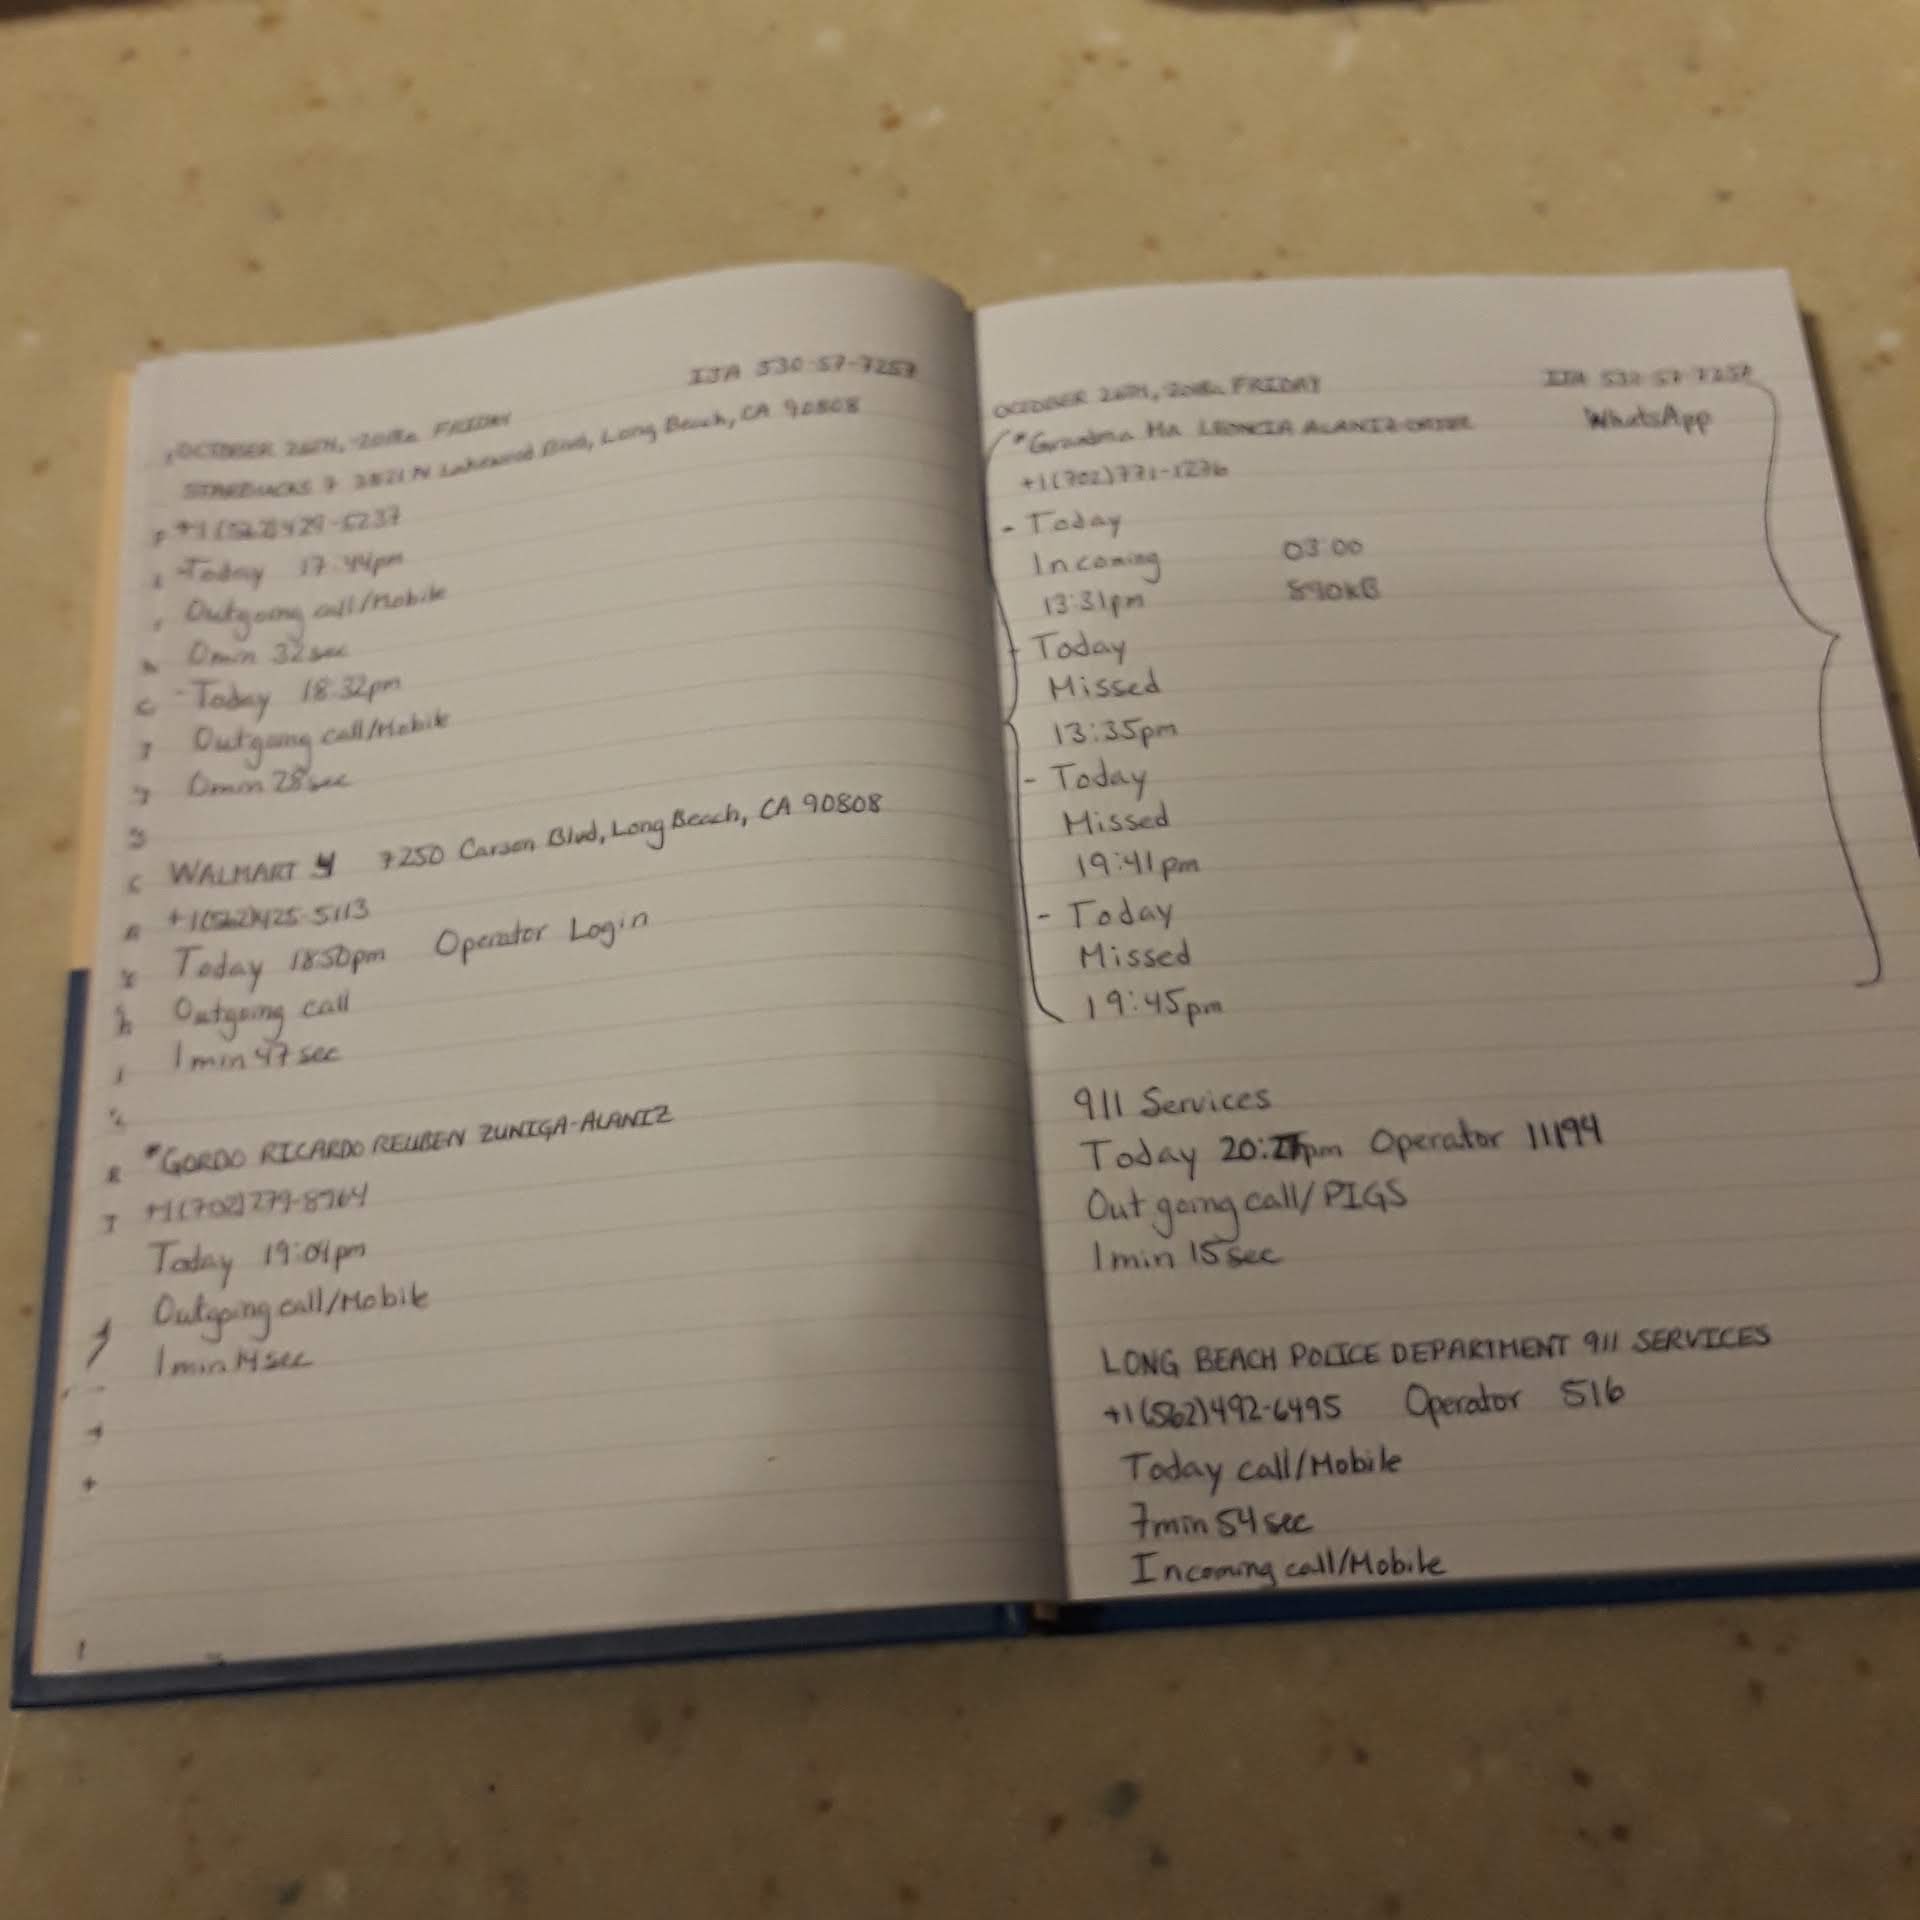 OCTOBER 26TH, 2018 FRIDAY
STARBUCKS 7 3821 N Lakewood Blvd, Long Beach, CA 90808
+1(562)429-5237
-Today 17:44pm
Outgoing call/Mobile
0min 32sec
-Today 18:32pm
Outgoing call/Mobile
0min 28sec
WALMART 7250 Carson Blvd, Long Beach, CA 90808
+1(562)425-5113
Today 18:50pm Operator Login
Outgoing call
1min 47sec
*GORDO RICARDO REUBEN ZUNIGA-ALANIZ
+1(702)279-8964
Today 19:01pm
Outgoing call/Mobile
1min 14sec
OCTOBER 26TH, FRIDAY
*Grandma Ma LEONCIA ALANIZ WhatsApp
+1(702)771-1276
- Today
Incoming 03:00
13:31pm 590kB
- Today
Missed
13:35pm
- Today
Missed
19:41pm
- Today
Missed
19:45pm
911 Services
Today Operator 11194
Outgoing call/PIGS
1min 15sec
LONG BEACH POLICE DEPARTMENT 911 SERVICES
+1(562)492-6495 Operator 516
Today call/Mobile
7min 54sec
Incoming call/Mobile